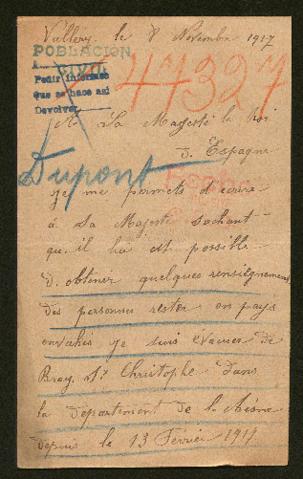 Vallery, le 8 Novembre 1917
POBLACION
CIVIL
47327
Pedir informes
que se hace así
Devolver
A Sa Majesté le Roi
d. Espagne
Dupont
je me permets d'écrire
à Sa Majesté sachant
qu. il lui est possible
d. obtenir quelques renseignements
des personnes rester en pays
envahis je suis évacuer de
Bray St Christophe dans
la département de l. Aisne
depuis le 13 Février 1917